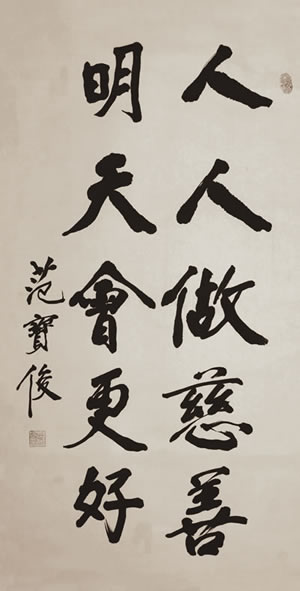 人人做慈善
明天會更好
范寶俊